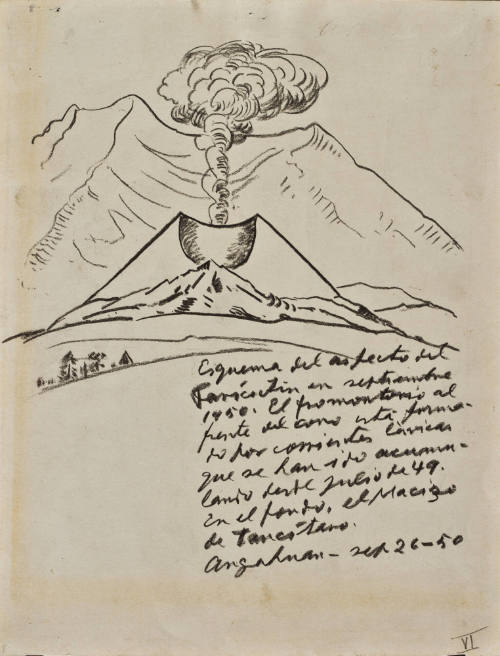 Esquema del aspecto del
Parícutin en septiembre
1950. El promontorio al
frente del cono está forma-
do por corrientes lávicas
que se han ido acumu-
lando desde Julio de 49.
En el fondo, el Macizo
de Tancítaro.
Angahuan - sep 26-50
VI